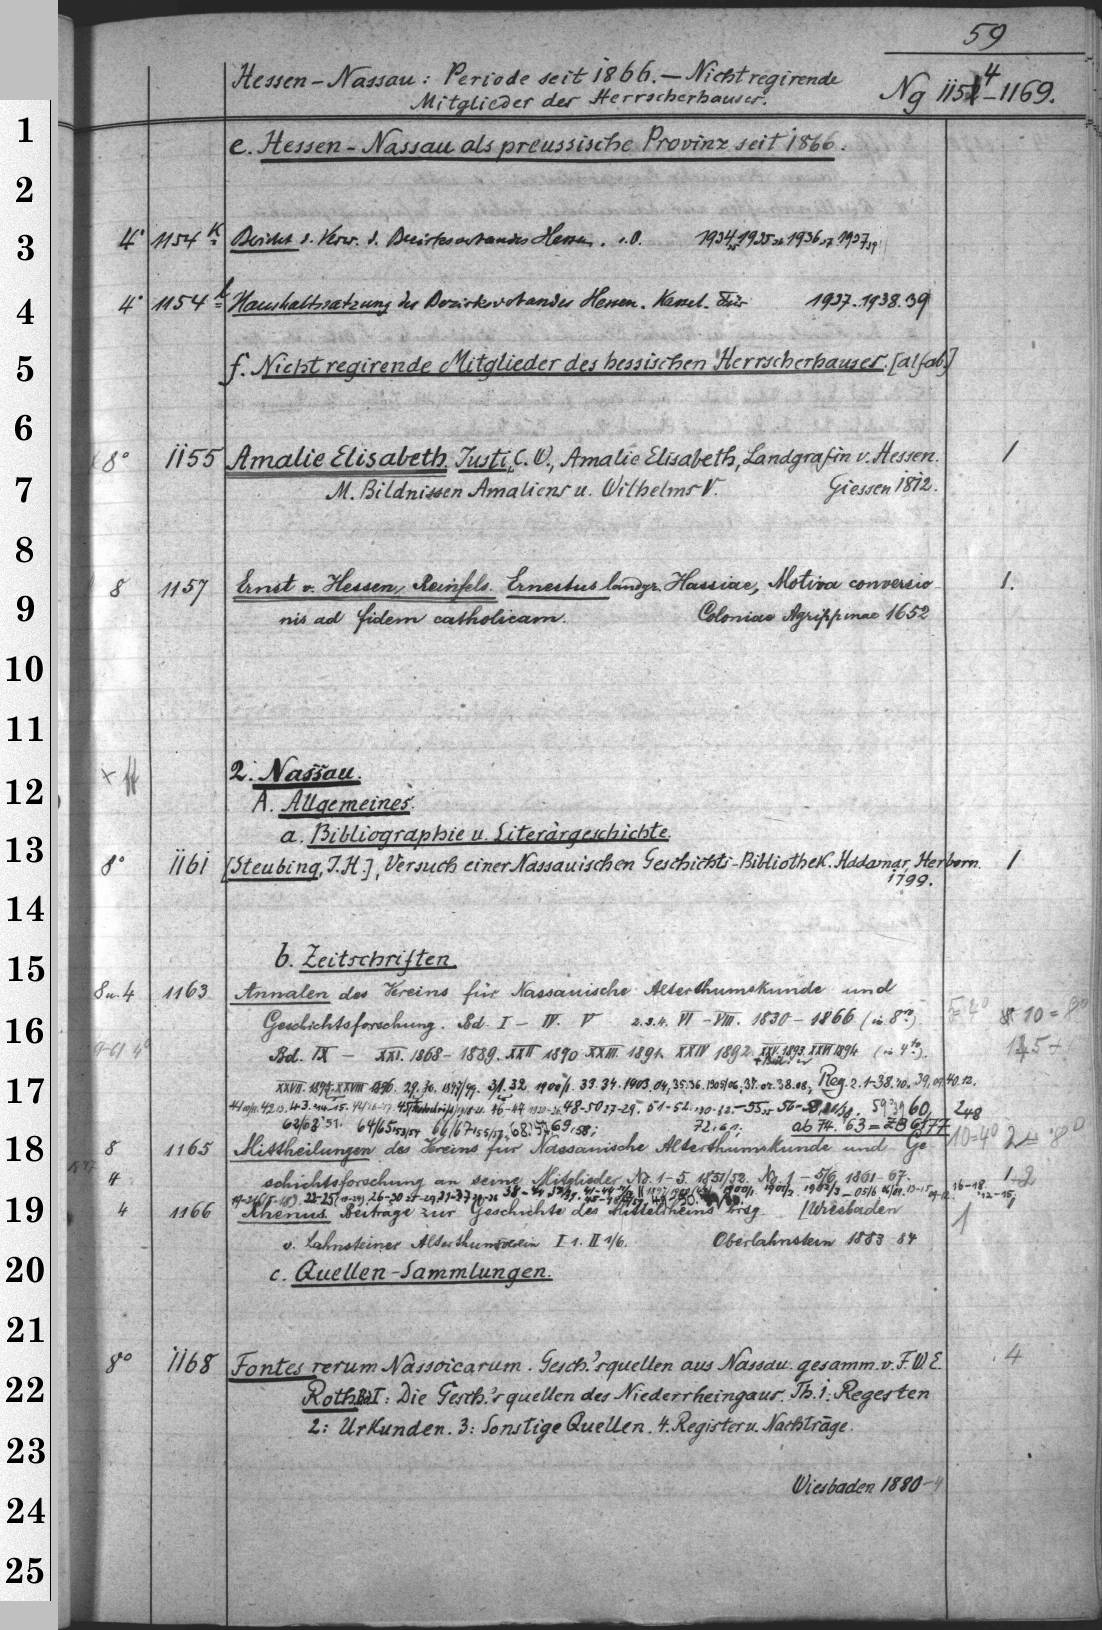 59
Hessen-Nassau: Periode seit 1866. — Nichtregirende
Mitglieder des Herrscherhauses.
Ng 1154-1169.
1
e. Hessen-Nassau als preussische Provinz seit 1866.
2
3
4° 1154 k Bericht d. Verw. d. Bezirksverbandes Hessen. 1934 1935 1936 1937
4
4° 1154 l Haushaltssatzung des Bezirksverbandes Hessen. Kassel. für 1937. 1938. 39
5
f. Nicht regirende Mitglieder des hessischen Herrscherhauses. [alfab.]
6
8° 1155 Amalie Elisabeth Justi, C. W., Amalie Elisabeth, Landgräfin v. Hessen. 1
7
M. Bildnissen Amaliens u. Wilhelms V. Giessen 1812.
8
8 1157 Ernst v. Hessen, Reinfels. Ernestus landgr. Hassiae, Motiva conversio- 1.
9
nis ad fidem catholicam. Coloniae Agrippinae 1652
10
11
2. Nassau.
12
A. Allgemeines.
a. Bibliographie u. Literärgeschichte.
13
8° 1161 [Steubing, J. H.], Versuch einer Nassauischen Geschichts-Bibliothek. Hadamar, Herborn. 1
1799.
14
b. Zeitschriften.
15
8 u. 4 1163 Annalen des Vereins für Nassauische Alterthumskunde und
16
Geschichtsforschung. Bd. I — IV. V 2.3.4. VI – VIII. 1830 – 1866 (in 8°) 10 = 8°
Bd. IX — XXI. 1868 – 1889. XXII 1890 XXIII 1891. XXIV 1892. XXV. 1893. XXVI 1894 (in 4to).
17
XXVII. XXVIII 1896. 29. 30. 1897/99. 31. 32 1900/1. 33. 34. 1903, 04, 35. 36. 1905/06, 37. 38. 08, Reg. 2. 1-38. 10. 39, 09. 40. 12.
48-50 27-29. 51-52. 60,
64/65 66/67 68. 69. 58; 72. 61; ab 74. 63 = ZB 6177
18
8 1165 Mittheilungen des Vereins für Nassauische Alterthumskunde und Ge- 10=4°
4 schichtsforschung an seine Mitglieder No. 1 – 5. 1851/52. No. 1 – 5/6. 1861 – 67.
19
4 1166 Rhenus Beiträge zur Geschichte des Mittelrheins hrsg. [Wiesbaden 1
v. Lahnsteiner Alterthumsverein I 1. II 1/6. Oberlahnstein 1883 84
20
c. Quellen-Sammlungen.
21
8° 1168 Fontes rerum Nassoicarum. Gesch.'squellen aus Nassau. gesamm. v. F. W. E. 4
22
Roth. Bd I: Die Gesch.'squellen des Niederrheingaus. Th. 1: Regesten
2: Urkunden. 3: Sonstige Quellen. 4. Register u. Nachträge.
23
Wiesbaden 1880-4
24
25